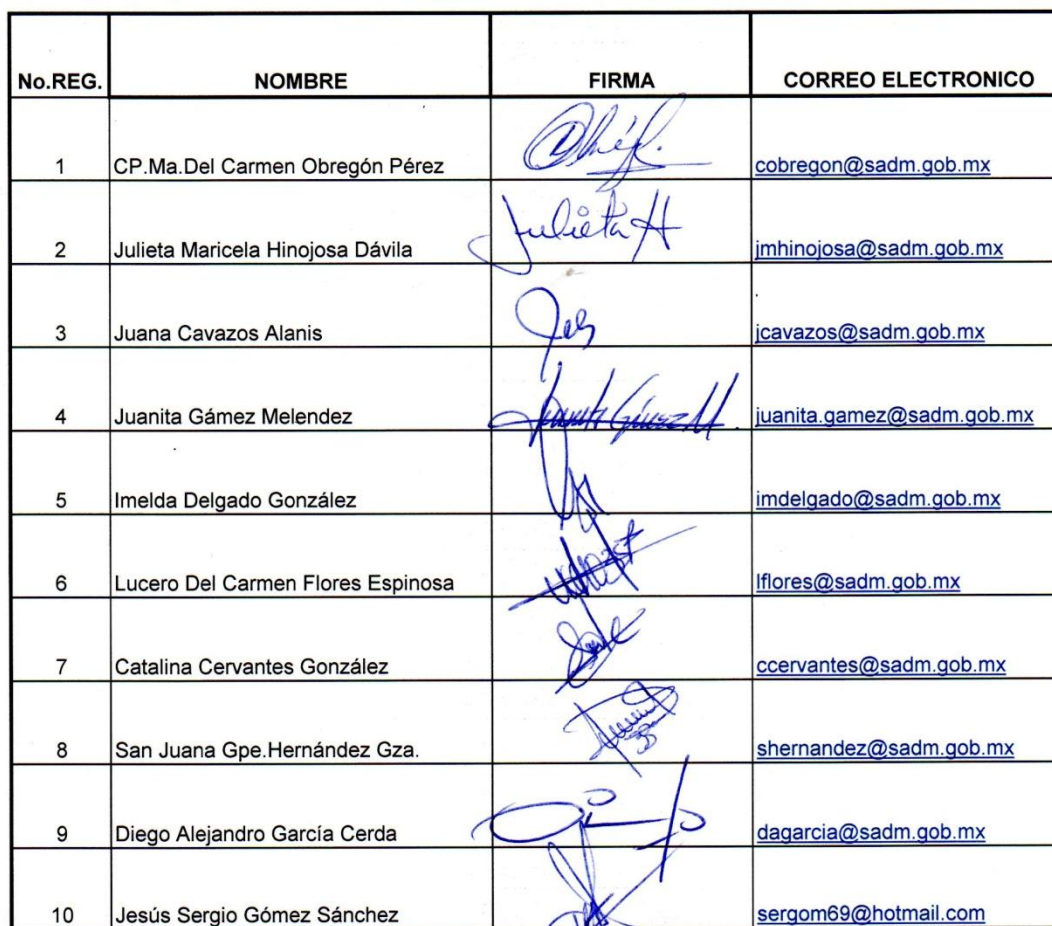 No.REG. NOMBRE FIRMA CORREO ELECTRONICO
1 CP.Ma.Del Carmen Obregón Pérez cobregon@sadm.gob.mx
2 Julieta Maricela Hinojosa Dávila Julieta H jmhinojosa@sadm.gob.mx
3 Juana Cavazos Alanis jcavazos@sadm.gob.mx
4 Juanita Gámez Melendez Juanita Gámez M juanita.gamez@sadm.gob.mx
5 Imelda Delgado González imdelgado@sadm.gob.mx
6 Lucero Del Carmen Flores Espinosa lflores@sadm.gob.mx
7 Catalina Cervantes González ccervantes@sadm.gob.mx
8 San Juana Gpe.Hernández Gza. shernandez@sadm.gob.mx
9 Diego Alejandro García Cerda dagarcia@sadm.gob.mx
10 Jesús Sergio Gómez Sánchez sergom69@hotmail.com